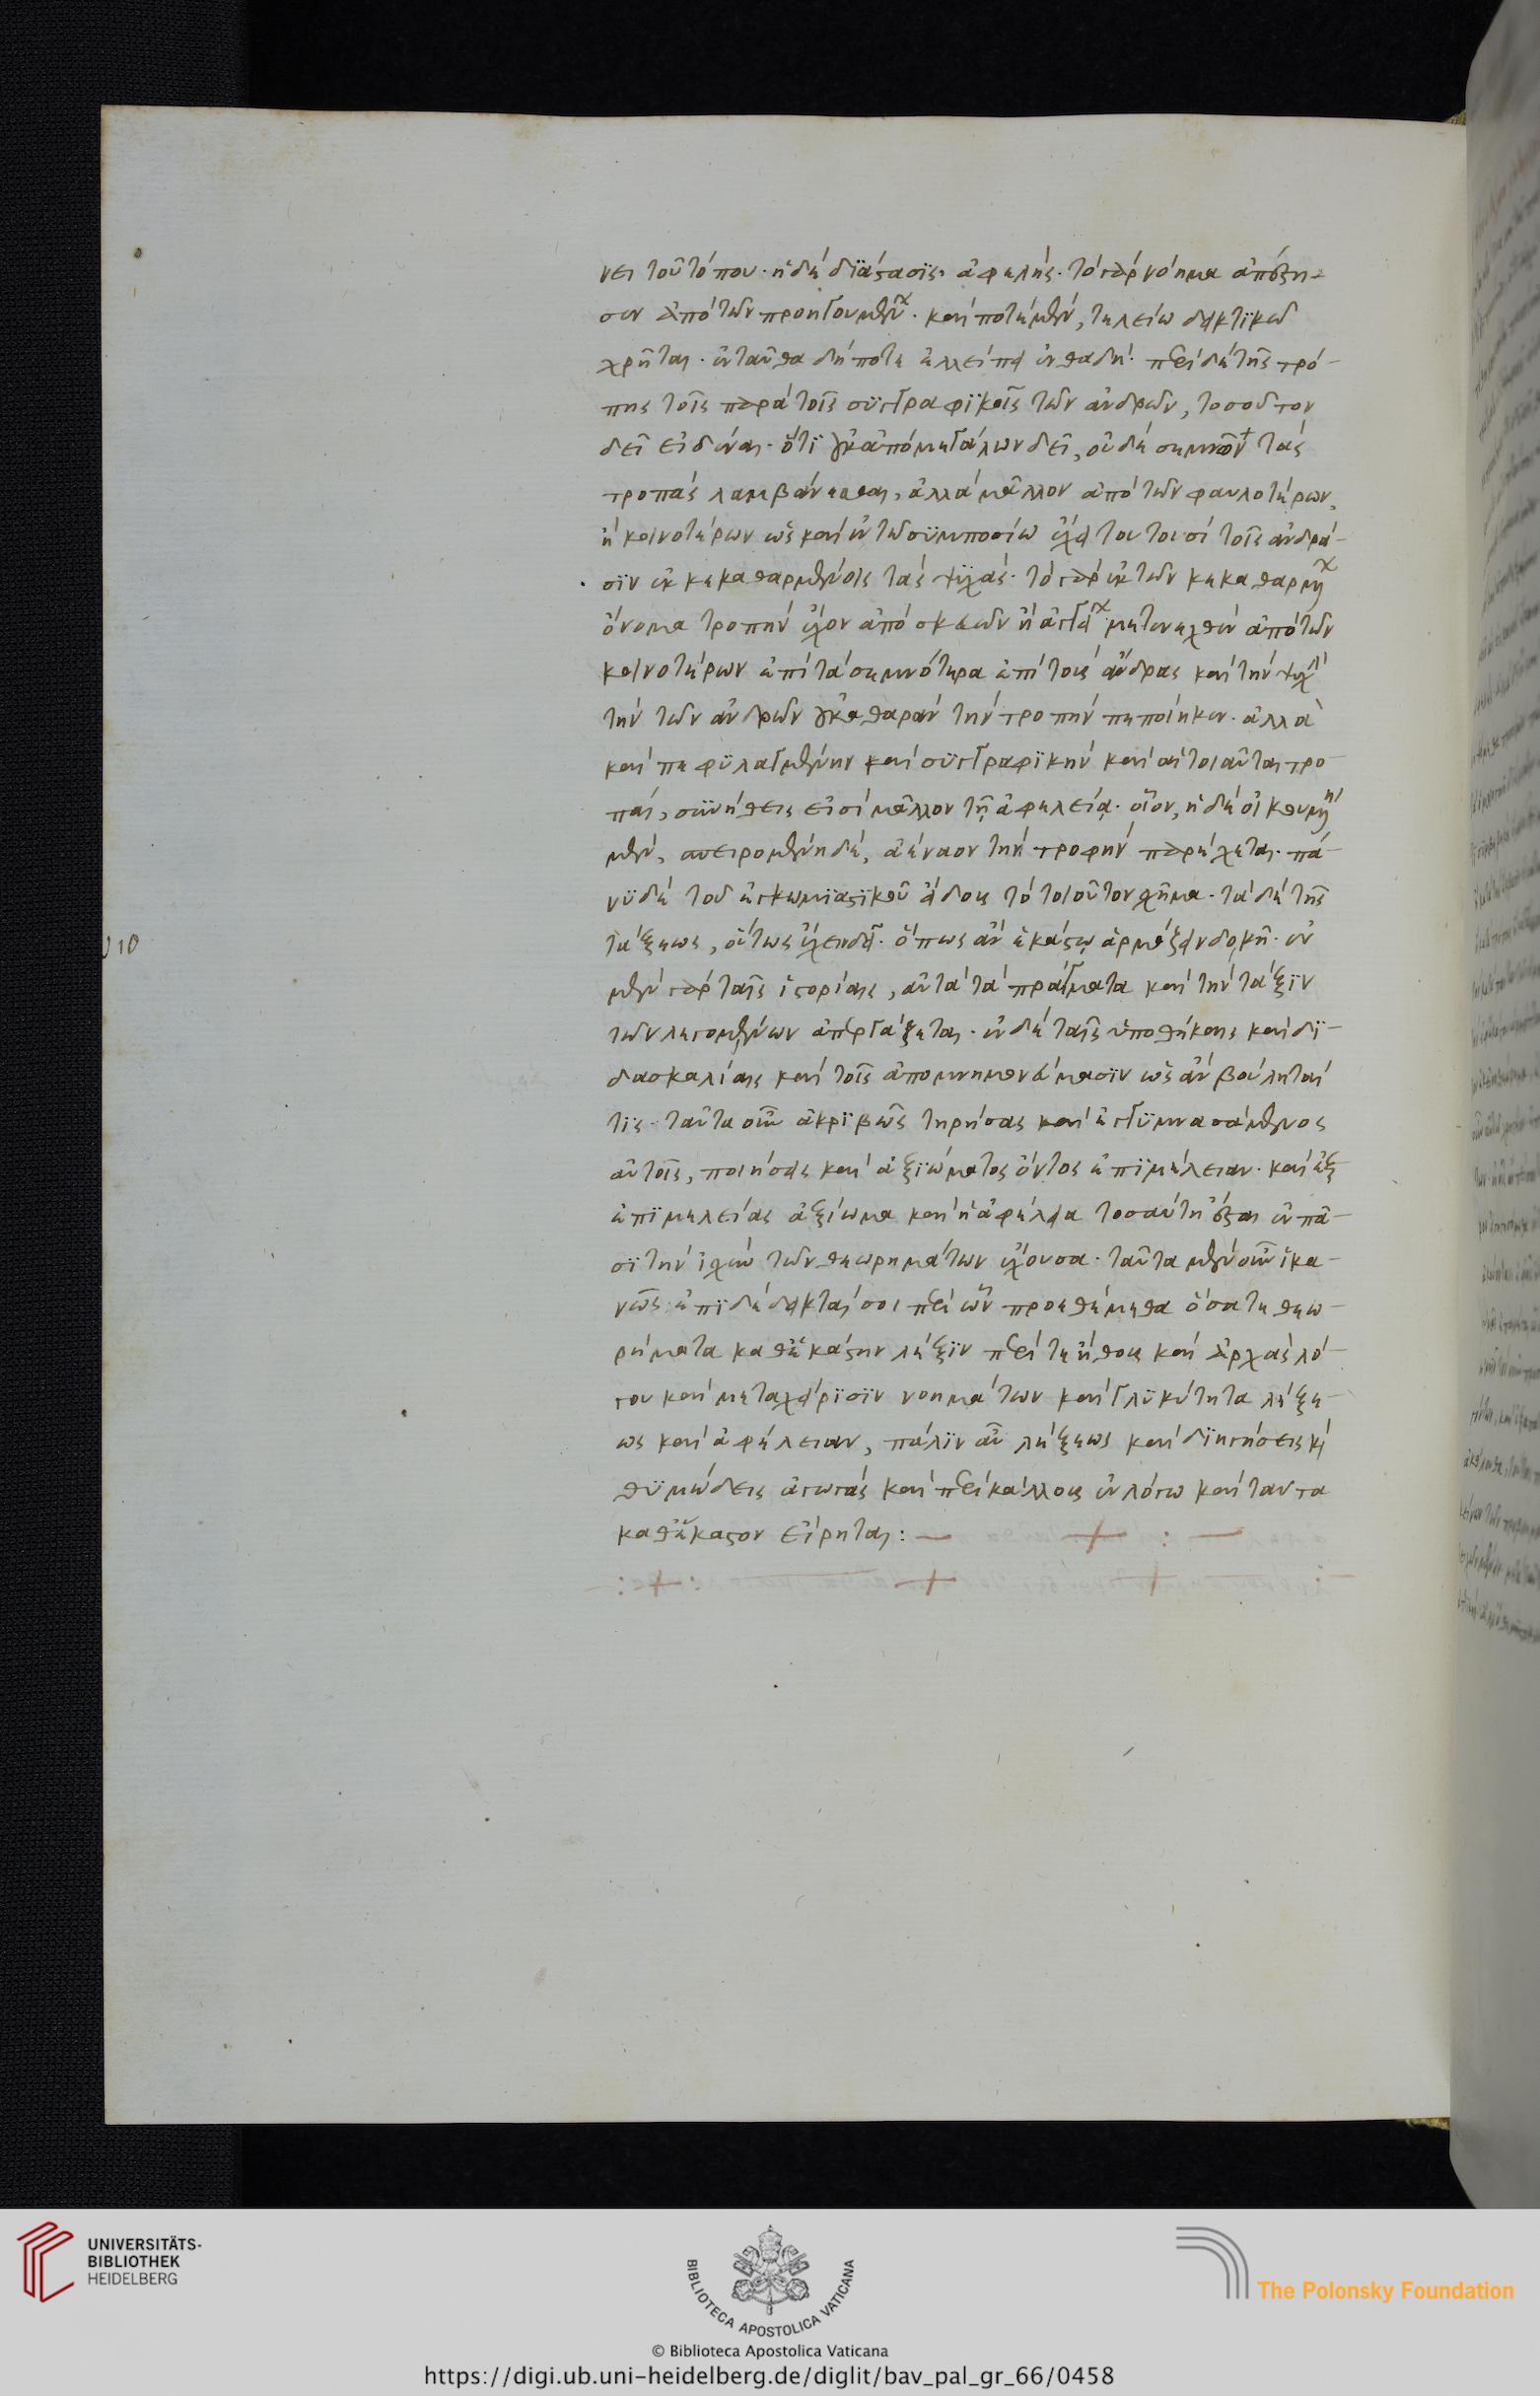 νει τοῦ τόπου. ἡ δὲ διάστασις ἀφελής. τὸ γὰρ νόημα ἀπέστη-
σεν ἀπὸ τῶν προηγουμένων. καὶ ποτὲ μὲν, τελείω δεικτικῶ
χρῆται. ἐνταῦθα δήποτε ἐλλείπει ἐνθαδί. περὶ δὲ τῆς τρό-
πης τοῖς παρὰ τοῖς συγγραφικοῖς τῶν ἀνδρῶν, τοσοῦτον
δεῖ εἰδέναι. ὅτι οὐκ ἀπὸ μεγάλων δεῖ, οὐδὲ σεμνῶν τὰς
τροπὰς λαμβάνεσθαι, ἀλλὰ μᾶλλον ἀπὸ τῶν φαυλοτέρων,
ἢ κοινοτέρων ὡς καὶ ἐν τῶ συμποσίω ἔχει τουτουσὶ τοῖς ἀνδρά-
σιν ἐκκεκαθαρμένοις τὰς ψυχάς. τὸ γὰρ ἐκ τῶν κεκαθαρμένων
ὄνομα τροπὴν ἔχον ἀπὸ σκευῶν ἢ ἀγγείων μετενεχθὲν ἀπὸ τῶν
κοινοτέρων ἐπὶ τὰ σεμνότερα ἐπὶ τοὺς ἄνδρας καὶ τὴν ψυχὴν
τὴν τῶν ἀνδρῶν οὐ καθαρὰν τὴν τροπὴν πεποίηκεν. ἀλλὰ
καὶ πεφυλαγμένην καὶ συγγραφικὴν καὶ αἱ τοιαῦται τρο-
παὶ, συνήθεις εἰσὶ μᾶλλον τῇ ἀφελείᾳ. οἷον, ἡ δὲ οἰκουμένη
μὲν, σπειρομένη δὲ, ἀέναον τὴν τροφὴν παρέχεται. πά-
νυ δὲ τοῦ ἐγκωμιαστικοῦ εἴδους τὸ τοιοῦτον σχῆμα. τὰ δὲ τῆς
τάξεως, οὕτως ἔχειν δεῖ. ὅπως ἂν ἑκάστῳ ἁρμόζειν δοκῇ. ἐν
μὲν γὰρ ταῖς ἱστορίαις, αὐτὰ τὰ πράγματα καὶ τὴν τάξιν
τῶν λεγομένων ἀπεργάζεται. ἐν δὲ ταῖς ὑποθήκαις καὶ δι-
δασκαλίαις καὶ τοῖς ἀπομνημονεύμασιν ὡς ἂν βούληταί
τις. ταῦτα οὖν ἀκριβῶς τηρήσας καὶ ἐγγυμνασάμενος
αὐτοῖς, ποιήσεις καὶ ἀξιώματος ὄντος ἐπιμέλειαν. καὶ ἐξ
ἐπιμελείας ἀξίωμα καὶ ἡ ἀφέλεια τοσαύτη ἔσται ἐν πᾶ-
σι τὴν ἰσχὺν τῶν θεωρημάτων ἔχουσα. ταῦτα μὲν οὖν ἱκα-
νῶς ἐπιδέδεικταί σοι περὶ ὧν προεθέμεθα ὅσα τε θεω-
ρήματα καθ' ἑκάστην λέξιν περί τε ἤθους καὶ ἀρχὰς λό-
γου καὶ μεταχείρισιν νοημάτων καὶ γλυκύτητα λέξε-
ως καὶ ἀφέλειαν, πάλιν αὖ λέξεως καὶ διηγήσεις καὶ
θυμώδεις ἀγωγὰς καὶ περὶ κάλλους ἐν λόγω καὶ ταῦτα
καθ' ἕκαστον εἴρηται:
UNIVERSITÄTS-
BIBLIOTHEK
HEIDELBERG
BIBLIOTECA APOSTOLICA VATICANA
The Polonsky Foundation
© Biblioteca Apostolica Vaticana
https://digi.ub.uni-heidelberg.de/diglit/bav_pal_gr_66/0458